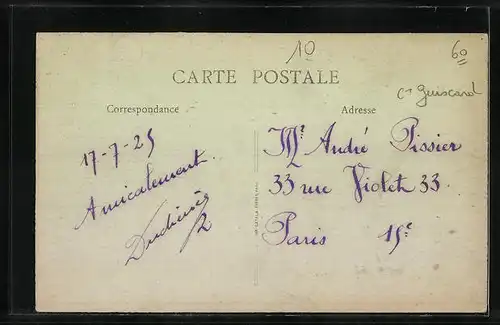 10
60
CARTE POSTALE
Cn Guiscard
Correspondance
Adresse
17-7-25
Amicalement
Mr André Pissier
33 rue Violet 33.
Paris 15e